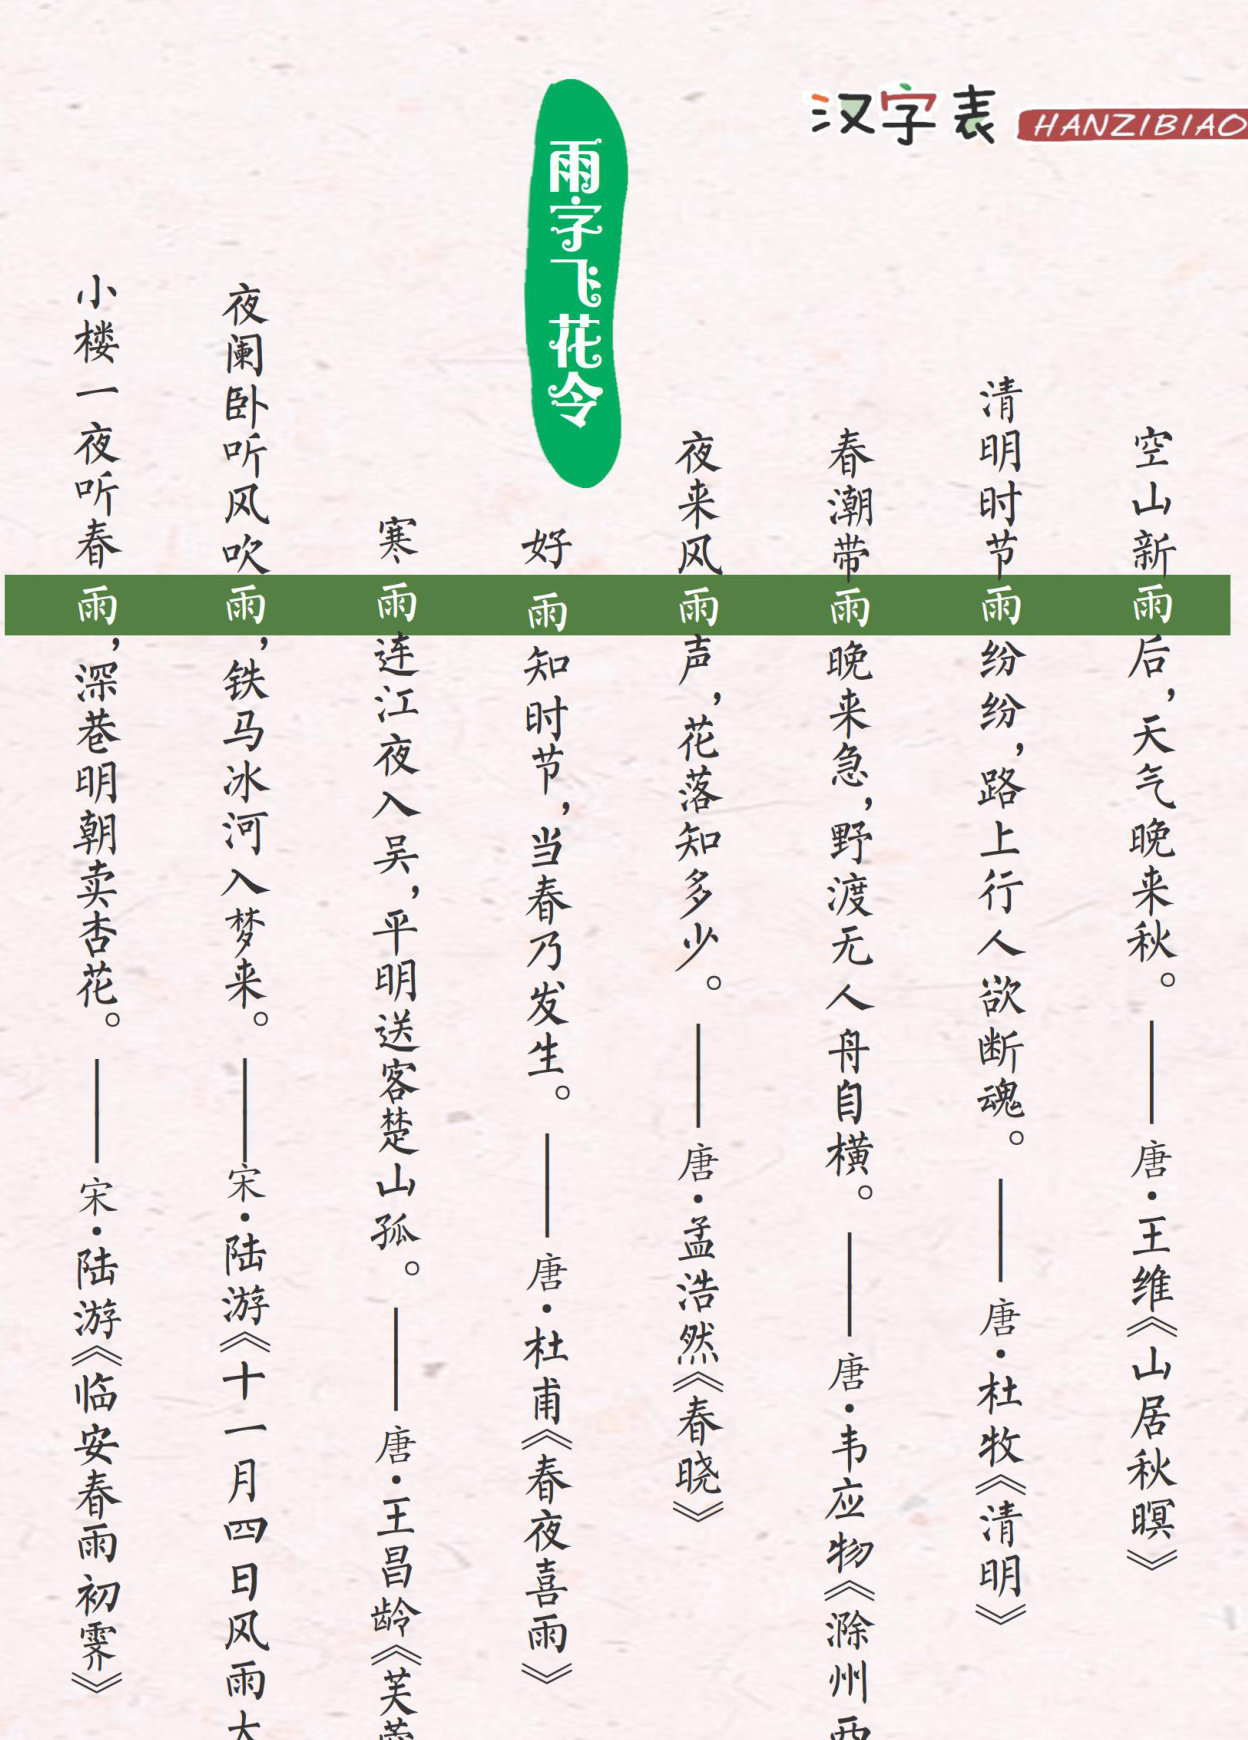 汉字表 HANZIBIAO
雨字飞花令
空山新雨后，天气晚来秋。——唐·王维《山居秋暝》
清明时节雨纷纷，路上行人欲断魂。——唐·杜牧《清明》
春潮带雨晚来急，野渡无人舟自横。——唐·韦应物《滁州西
夜来风雨声，花落知多少。——唐·孟浩然《春晓》
好雨知时节，当春乃发生。——唐·杜甫《春夜喜雨》
寒雨连江夜入吴，平明送客楚山孤。——唐·王昌龄《芙蓉
夜阑卧听风吹雨，铁马冰河入梦来。——宋·陆游《十一月四日风雨大
小楼一夜听春雨，深巷明朝卖杏花。——宋·陆游《临安春雨初霁》